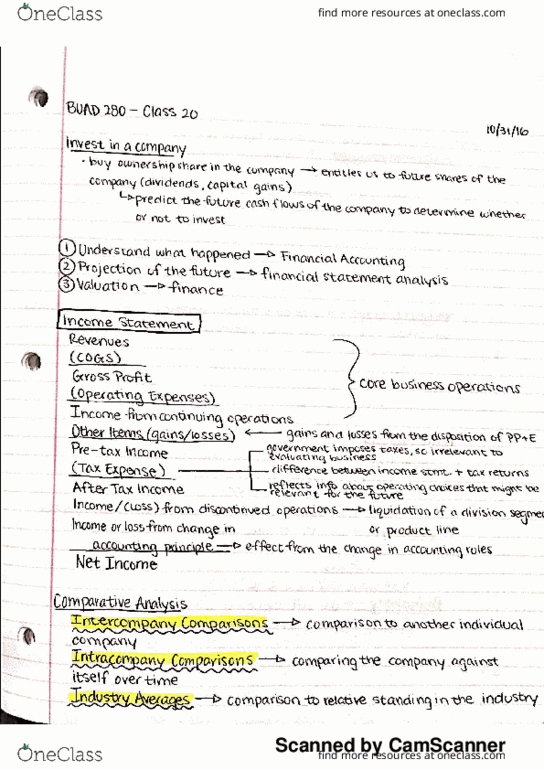 OneClass
find more resources at oneclass.com
BUAD 280 - Class 20
10/31/16
Invest in a company
· buy ownership share in the company → entitles us to future shares of the
company (dividends, capital gains)
↳ predict the future cash flows of the company to determine whether
or not to invest
① Understand what happened → Financial Accounting
② Projection of the future → financial statement analysis
③ Valuation → finance
Income Statement
Revenues
(COGS)
Gross Profit
(Operating Expenses)
core business operations
Income from continuing operations
Other Items (gains/losses) ← gains and losses from the disposition of PP+E
Pre-tax Income
government imposes taxes, so irrelevant to
evaluating business
(Tax Expense) difference between income stmt. + tax returns
After Tax Income
reflects info about operating choices that might be
relevant for the future
Income/(Loss) from discontinued operations → liquidation of a division segmen
or product line
Income or loss from change in
accounting principle → effect from the change in accounting rules
Net Income
Comparative Analysis
Intercompany Comparisons → comparison to another individual
company
Intracompany Comparisons → comparing the company against
itself over time
Industry Averages → comparison to relative standing in the industry
Scanned by CamScanner
OneClass
find more resources at oneclass.com